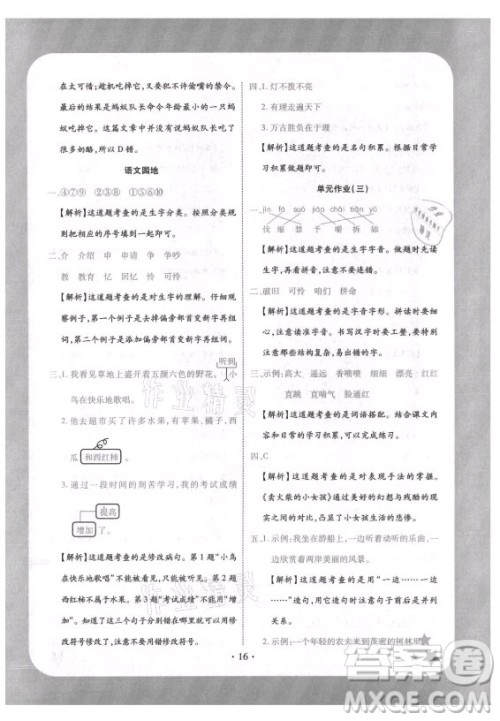 在太可惜；趁机吃掉它，又要犯不许偷嘴的禁令。
最后的结果是蚂蚁队长命令年龄最小的一只蚂
蚁吃掉它。这篇文章中并没有说蚂蚁队长得到了
很多奶酪，所以D错。
语文园地
一、④⑦⑨ ②③⑧ ①⑤⑥⑩
【解析】这道题考查的是生字分类。注意按照类
别把相应的序号填到一起即可。
二、介 介绍 申 申请 争 争吵
教 教育 忆 回忆 怜 可怜
【解析】这道题考查的是变字组词。注意仔细观
察例子，第一个例子是换偏旁部首变新字再组
词，第二个例子是去掉偏旁部首变新字再组词。
听到
三、1. 我看见草地上盛开着五颜六色的野花，小
鸟在快乐地歌唱。
2. 他去超市买了许多水果，有苹果，橘子，
瓜和西红柿。
3. 通过一段时间的刻苦学习，我的考试成绩
提高
增加了。
【解析】这道题考查的是修改病句。第1题“小鸟
在快乐地歌唱”，应该是听到而不是看见。第2题
西红柿不属于水果。第3题“考试成绩增加了”搭
配不当，应改为提高。修改的时候注意用相应的
符号修改，不要忘记使用修改符号。
四、1. 灯不拨不亮
2. 有理走遍天下
3. 万古胜负在于理
【解析】这道题考查的是名句积累。根据日常学
习积累做题即可。
单元作业（三）
一、jìn fá suō jiáo chāi bān yǔ
伐 缩 禁 予 嚼 拆 颁
【解析】这道题考查的是生字字音。做题时注意
多拼读拼音，看清字形，不要连错。
二、破旧 可怜 咱们 拼命
【解析】这道题考查的是看拼音写汉字。要看清
拼音，注意拼读。书写汉字时要工整，要横平竖
直，注意不要写错笔画。
三、示例：高大 遥远 香喷喷 细细 漂亮 红红
直蹦 直喘气 脸通红
【解析】这道题考查的是词语搭配。结合课文内
容和日常积累填空即可。
四、C
【解析】这道题考查的是对表现手法的掌握。
《卖火柴的小女孩》通过美好的幻想与残酷的现
实对比，突出小女孩生活的悲惨。
五、1. 示例：我坐在游船上，一边听着动听的乐曲，一
边欣赏着两岸美丽的风景。
【解析】这道题考查的是用“一边……一边……”
造句。造句时注意句子前后是并列关系。
2. 示例：一个年轻的农夫来到茂密的树林里
· 16 ·
作业精灵
作业精灵
答案圈
MXQE.COM